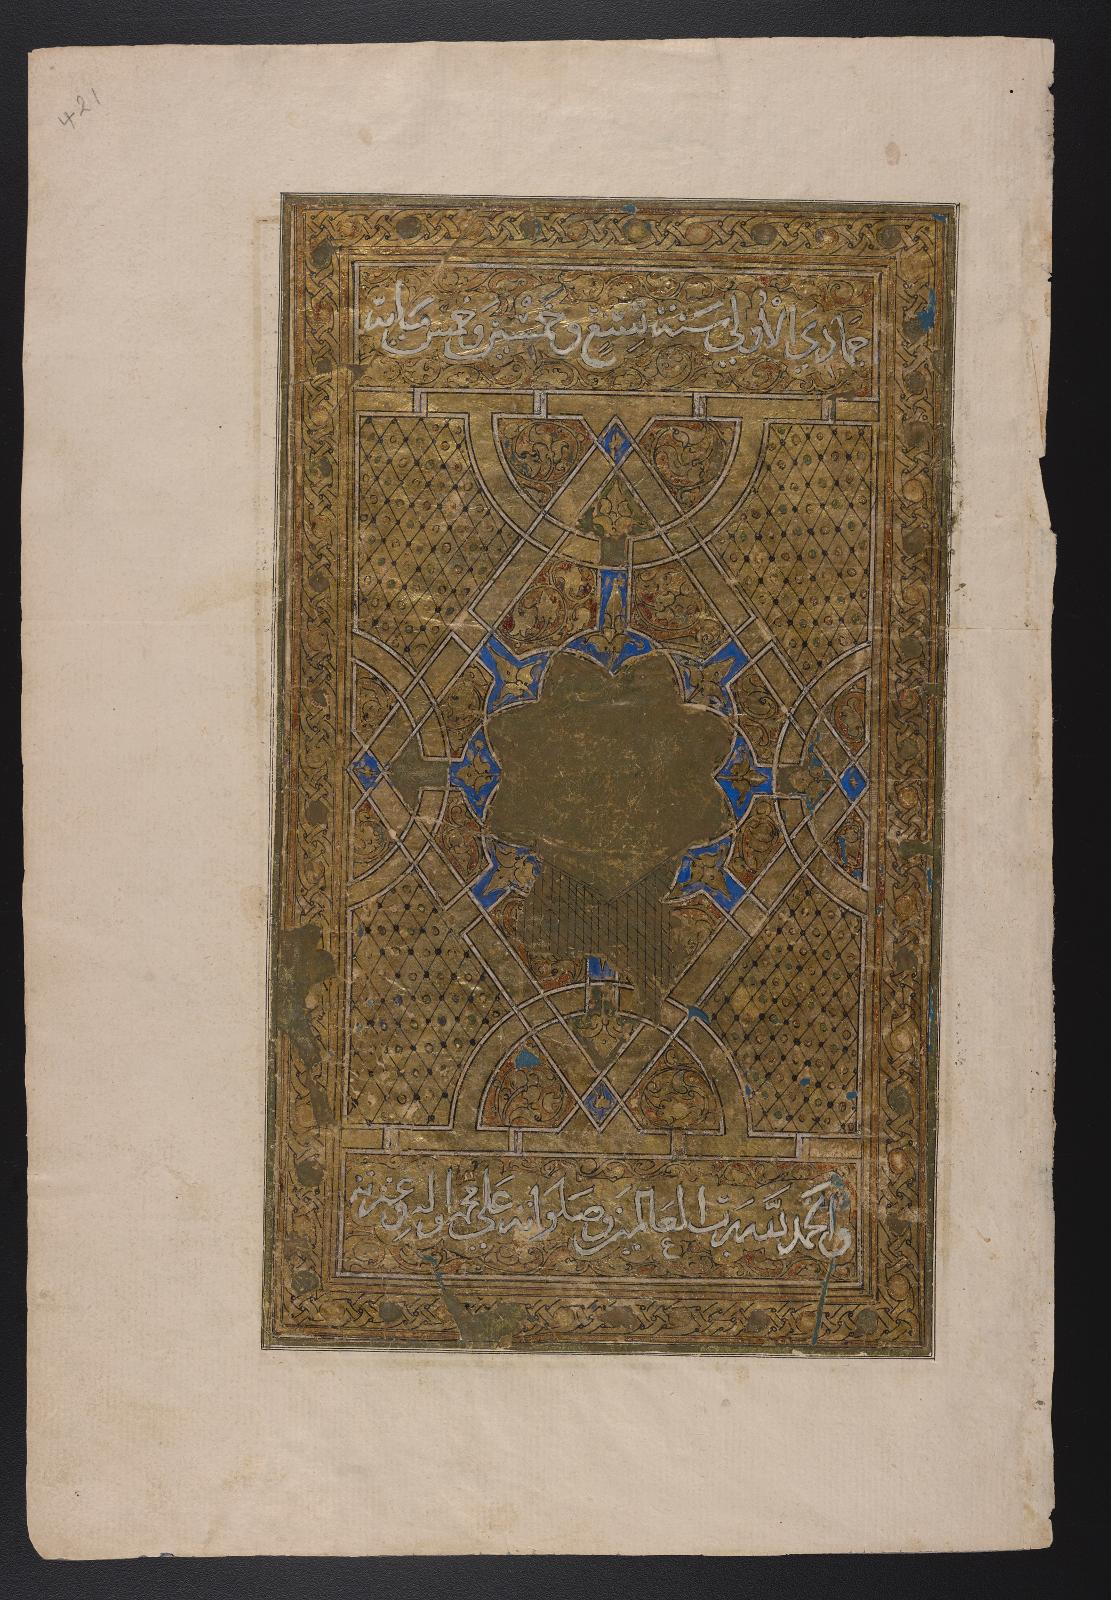 421
جمادي الأولي سنة تسع وخمسين وخمس مائة
والحمد لله رب العالمين وصلواته علي محمد واله وعترته